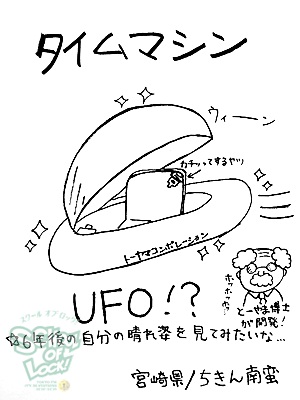 タイムマシン
ウィーン
カチッってするやつ
トーヤマコーポレーション
ホッホッホッ
とーやま博士
が開発!
UFO!?
☆6年後の自分の晴れ姿を見てみたいな…
スクール オブ ロック!
SCHOOL
OF
LOCK!
宮崎県/ちきん南蛮